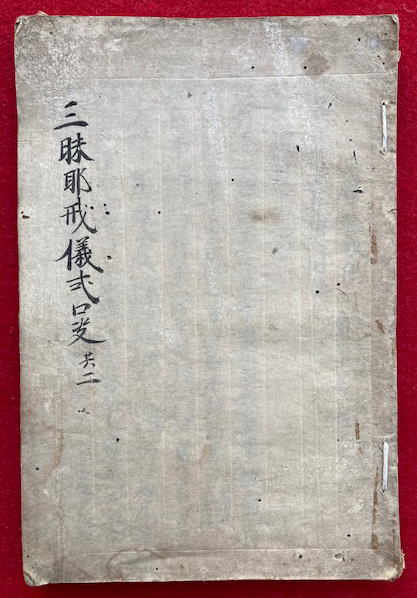 三昧耶戒儀式口受 共二